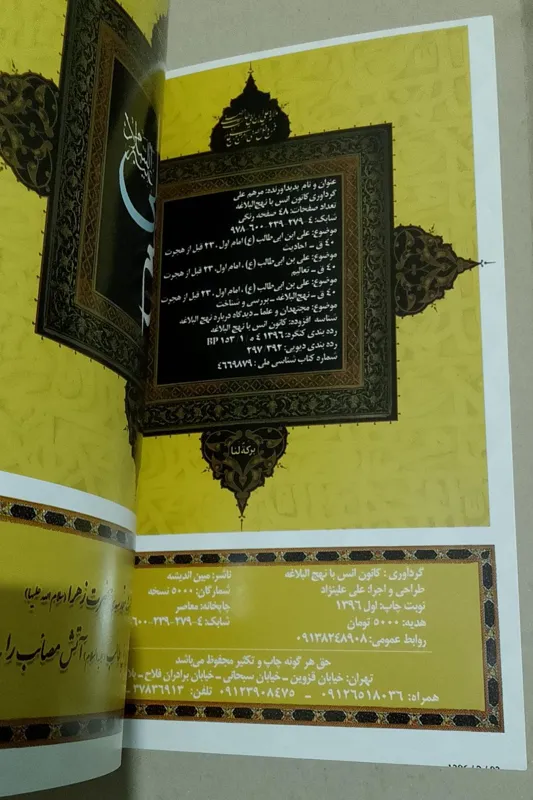 عنوان و نام پدیدآورنده: مرهم علی
گردآوری کانون انس با نهج‌البلاغه
تعداد صفحات: ۴۸ صفحه رنگی
شابک: ۴-۲۷۹-۲۳۹-۶۰۰-۹۷۸
موضوع: علی ابن ابی‌طالب (ع) امام اول، ۲۳ قبل از هجرت
۴۰ ق - احادیث
موضوع: علی بن ابی‌طالب (ع)، امام اول، ۲۳ قبل از هجرت
۴۰ ق - تعالیم
موضوع: علی بن ابی‌طالب (ع)، امام اول، ۲۳ قبل از هجرت
۴۰ ق - نهج‌البلاغه - بررسی و شناخت
موضوع: مجتهدان و علما - دیدگاه درباره نهج البلاغه
شناسه افزوده: کانون انس با نهج البلاغه
رده بندی کنگره: ۱۳۹۶ ۴ ه ۱ / BP ۱۵۳
رده بندی دیویی: ۲۹۷/۳۹۲
شماره کتاب شناسی ملی: ۴۶۶۹۸۷۹
برکة لنا
گردآوری: کانون انس با نهج البلاغه
ناشر: مبین اندیشه
طراحی و اجرا: علی علینژاد
شمارگان: ۵۰۰۰ نسخه
نوبت چاپ: اول ۱۳۹۶
چاپخانه: معاصر
هدیه: ۵۰۰۰ تومان
شابک: ۴-۲۷۹-۲۳۹-۶۰۰
روابط عمومی: ۰۹۱۳۸۲۴۸۹۰۸
حق هر گونه چاپ و تکثیر محفوظ می‌باشد
تهران: خیابان قزوین - خیابان سبحانی - خیابان برادران فلاح - پلا
همراه: ۰۹۱۲۶۵۱۸۰۳۶ - ۰۹۱۲۳۹۰۸۴۷۵ تلفن: ۳۷۸۳۶۹۱۳ -
حضرت زهرا (سلام الله علیها)
آتش مصائب را